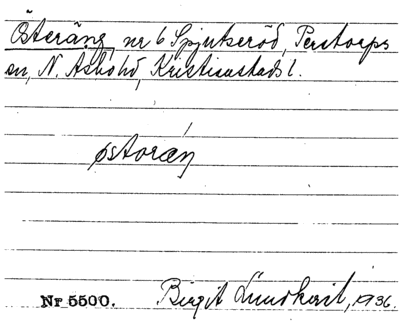 Österäng, nr 6 Spjutseröd, Perstorps
sn, N. Åsbo hd, Kristianstads l.
østoræŋ
Nr 5500. Birgit Lundkvist, 1936.